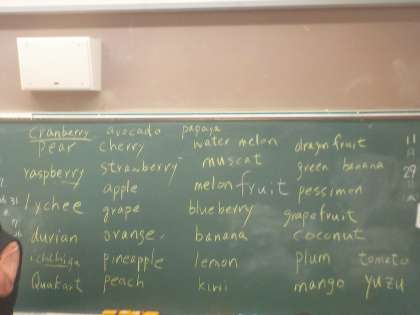 cranberry avocado papaya
pear cherry water melon dragon fruit
raspberry strawberry muscat green banana
apple melon fruit pessimon
lychee grape blueberry grapafruit
durian orange. banana coconut
ichehiga pineapple lemon plum tomato
Quakart peach kiwi mango yuzu
11
29